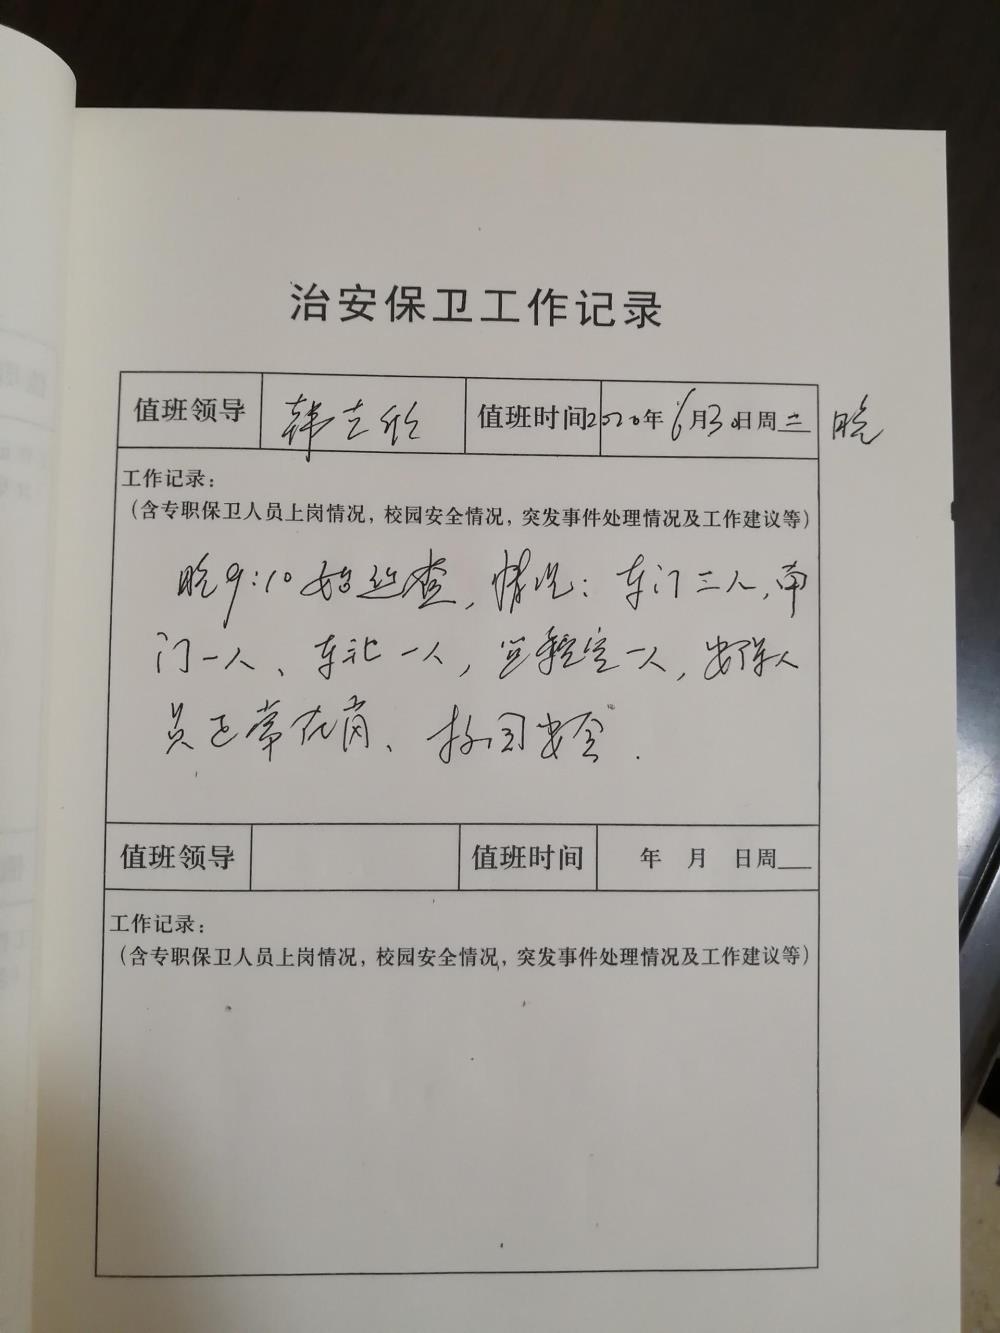 治安保卫工作记录
值班领导 韩 值班时间 2020年6月30日周二 晚
工作记录：
（含专职保卫人员上岗情况，校园安全情况，突发事件处理情况及工作建议等）
晚9:10开始巡查，情况：东门三人，南
门一人、东北一人，监控室一人，安保人
员正常在岗、校园安全.
值班领导 值班时间 年 月 日周
工作记录：
（含专职保卫人员上岗情况，校园安全情况，突发事件处理情况及工作建议等）